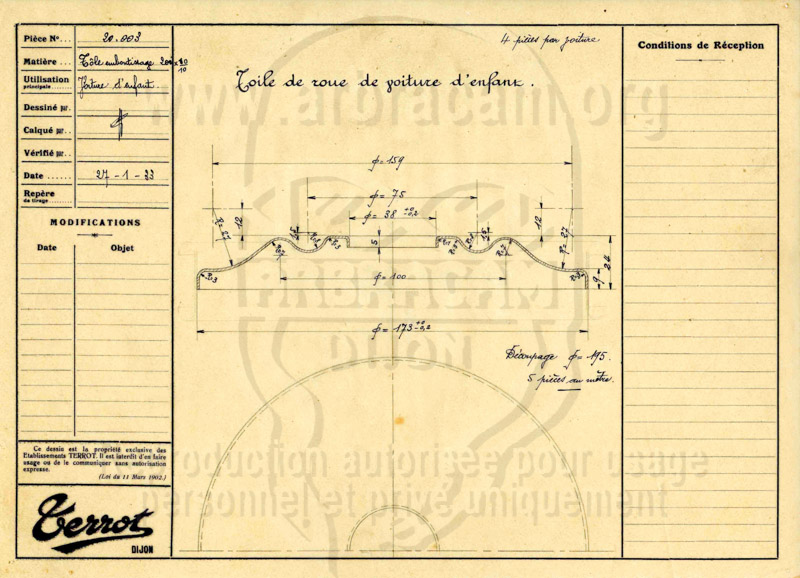 Pièce N°... 20.003
Matière... Tôle emboutissage
Utilisation Voiture d'enfant
principale
Dessiné par
Calqué par..
Vérifié par..
Date 27-1-33
Repère
du tirage
MODIFICATIONS
Date Objet
Ce dessin est la propriété exclusive des
Etablissements TERROT. Il est interdit d'en faire
usage ou de le communiquer sans autorisation
expresse.
(Loi du 11 Mars 1902.)
Terrot
DIJON
4 pièces par voiture
Toile de roue de voiture d'enfant.
φ=159
φ=75
φ=38 +0,2 -0
12
12
R=27
R=27
5
φ=100
24
9
φ=173 +0 -0,2
Découpage φ=195.
5 pièces au mètre.
Conditions de Réception
www.arbracam.org
ARBRACAM
DIJON
Reproduction autorisée pour usage
personnel et privé uniquement